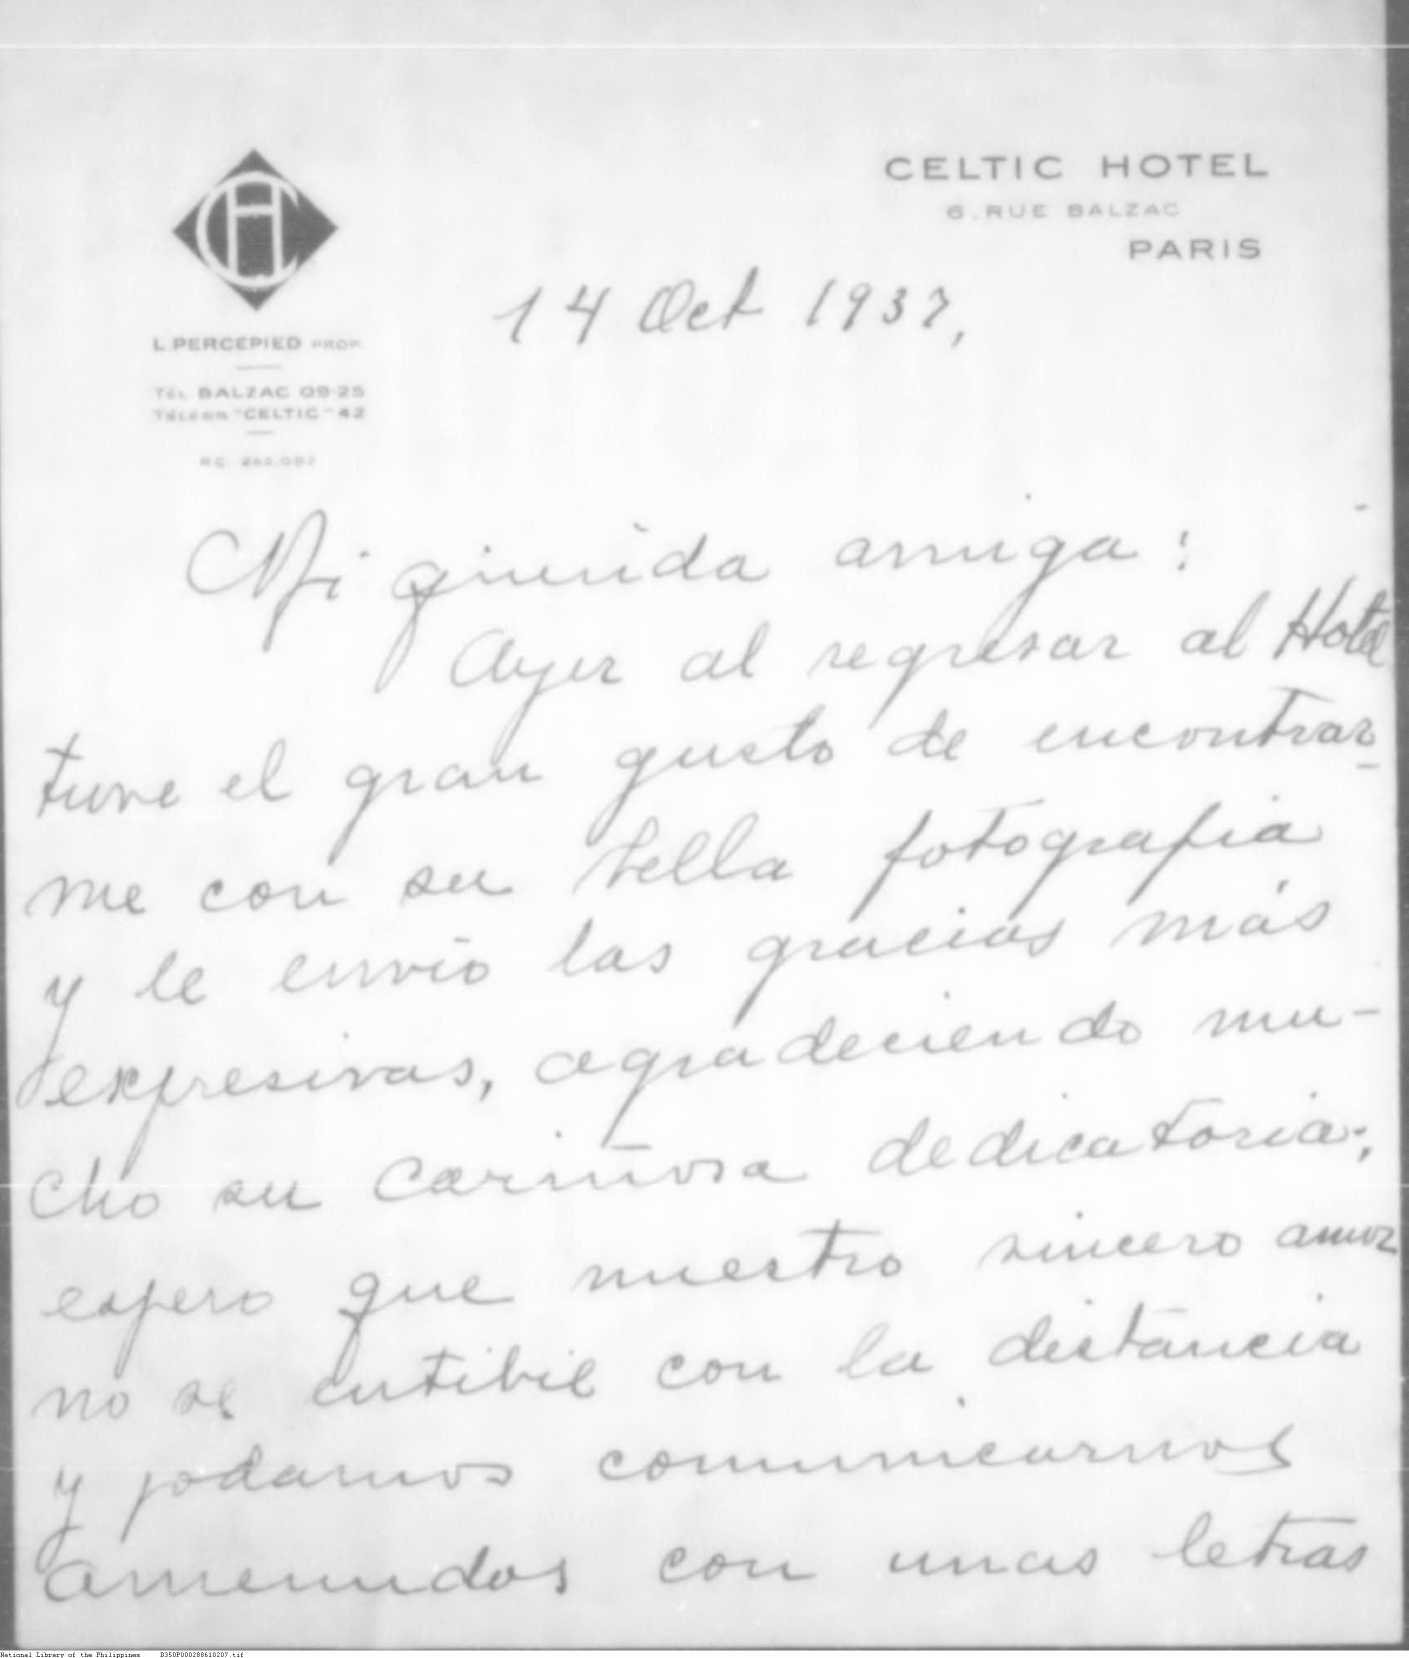 CELTIC HOTEL
6. RUE BALZAC
PARIS
L. PERCEPIED PROP.
TÉL. BALZAC 09-25
TÉLÉGR. "CELTIC" 42
R.C.
14 Oct 1937,
Mi querida amiga:
Ayer al regresar al Hotel
tuve el gran gusto de encontrar-
me con su bella fotografia
y le envio las gracias más
expresivas, agradeciendo mu-
cho su cariñosa dedicatoria;
espero que nuestro sincero amor
no se entibie con la distancia
y podamos comunicarnos
amenudos con unas letras
National Library of the Philippines D350P000288610207.tif